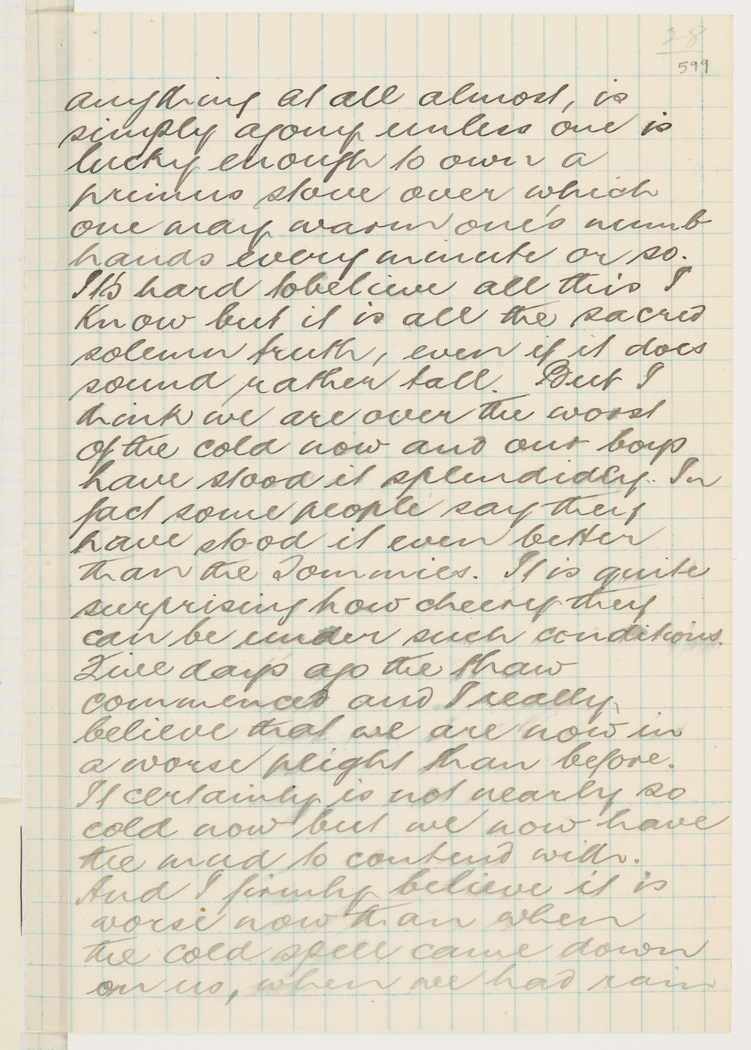 28
599
anything at all almost, is
simply agony unless one is
lucky enough to own a
primus stove over which
one may warm one's numb
hands every minute or so.
It's hard to believe all this I
know but it is all the sacred
solemn truth, even if it does
sound rather tall. But I
think we are over the worst
of the cold now and our boys
have stood it splendidly. In
fact some people say they
have stood it even better
than the Tommies. It is quite
surprising how cheery they
can be under such conditions.
Five days ago the thaw
commenced and I really
believe that we are now in
a worse plight than before.
It certainly is not nearly so
cold now but we now have
the mud to contend with.
And I firmly believe it is
worse now than when
the cold spell came down
on us, when we had rain